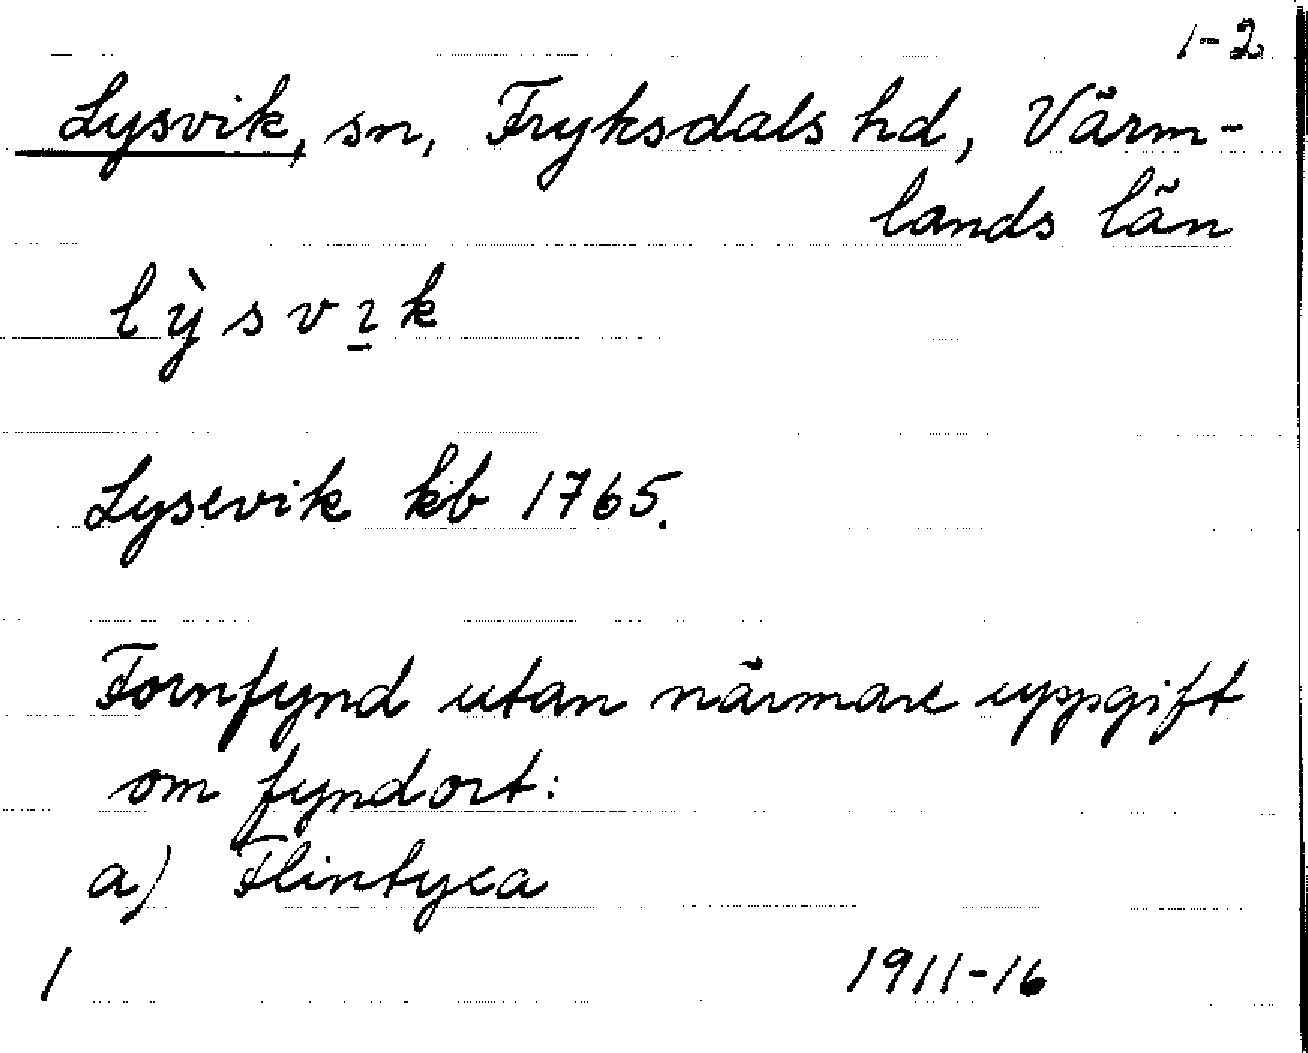 1-2
Lysvik, sn, Fryksdals hd, Värm-
lands län
lỳsvɩ̱k
Lysevik kb 1765.
Fornfynd utan närmare uppgift
om fyndort:
a) Flintyxa
1 1911-16